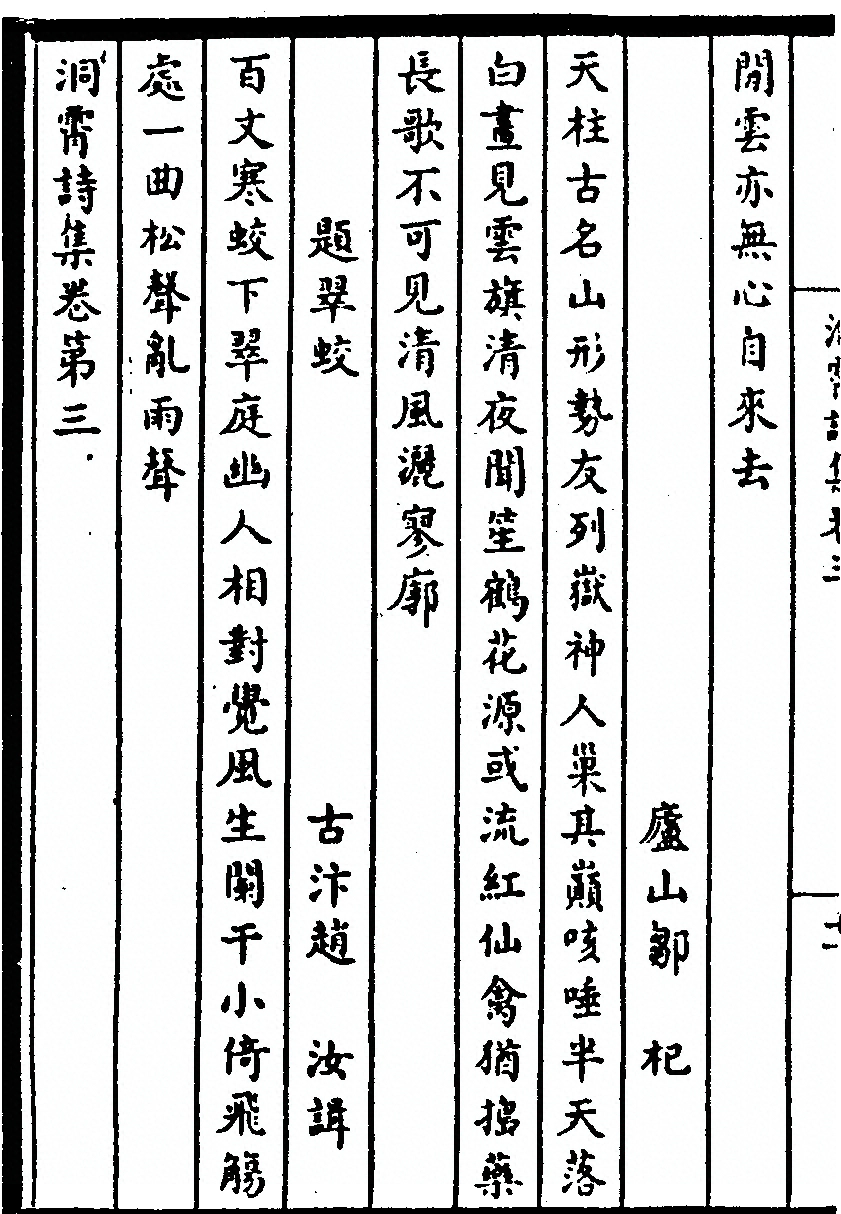 洞霄詩集卷三
十一
閒雲亦無心自來去
廬山鄒　杞
天柱古名山形勢友列嶽神人巢其巔咳唾半天落
白晝見雲旗清夜聞笙鶴花源或流紅仙禽猶搗藥
長歌不可見清風灑寥廓
題翠蛟　古汴趙　汝諿
百丈寒蛟下翠庭幽人相對覺風生闌干小倚飛觴
處一曲松聲亂雨聲
洞霄詩集卷第三